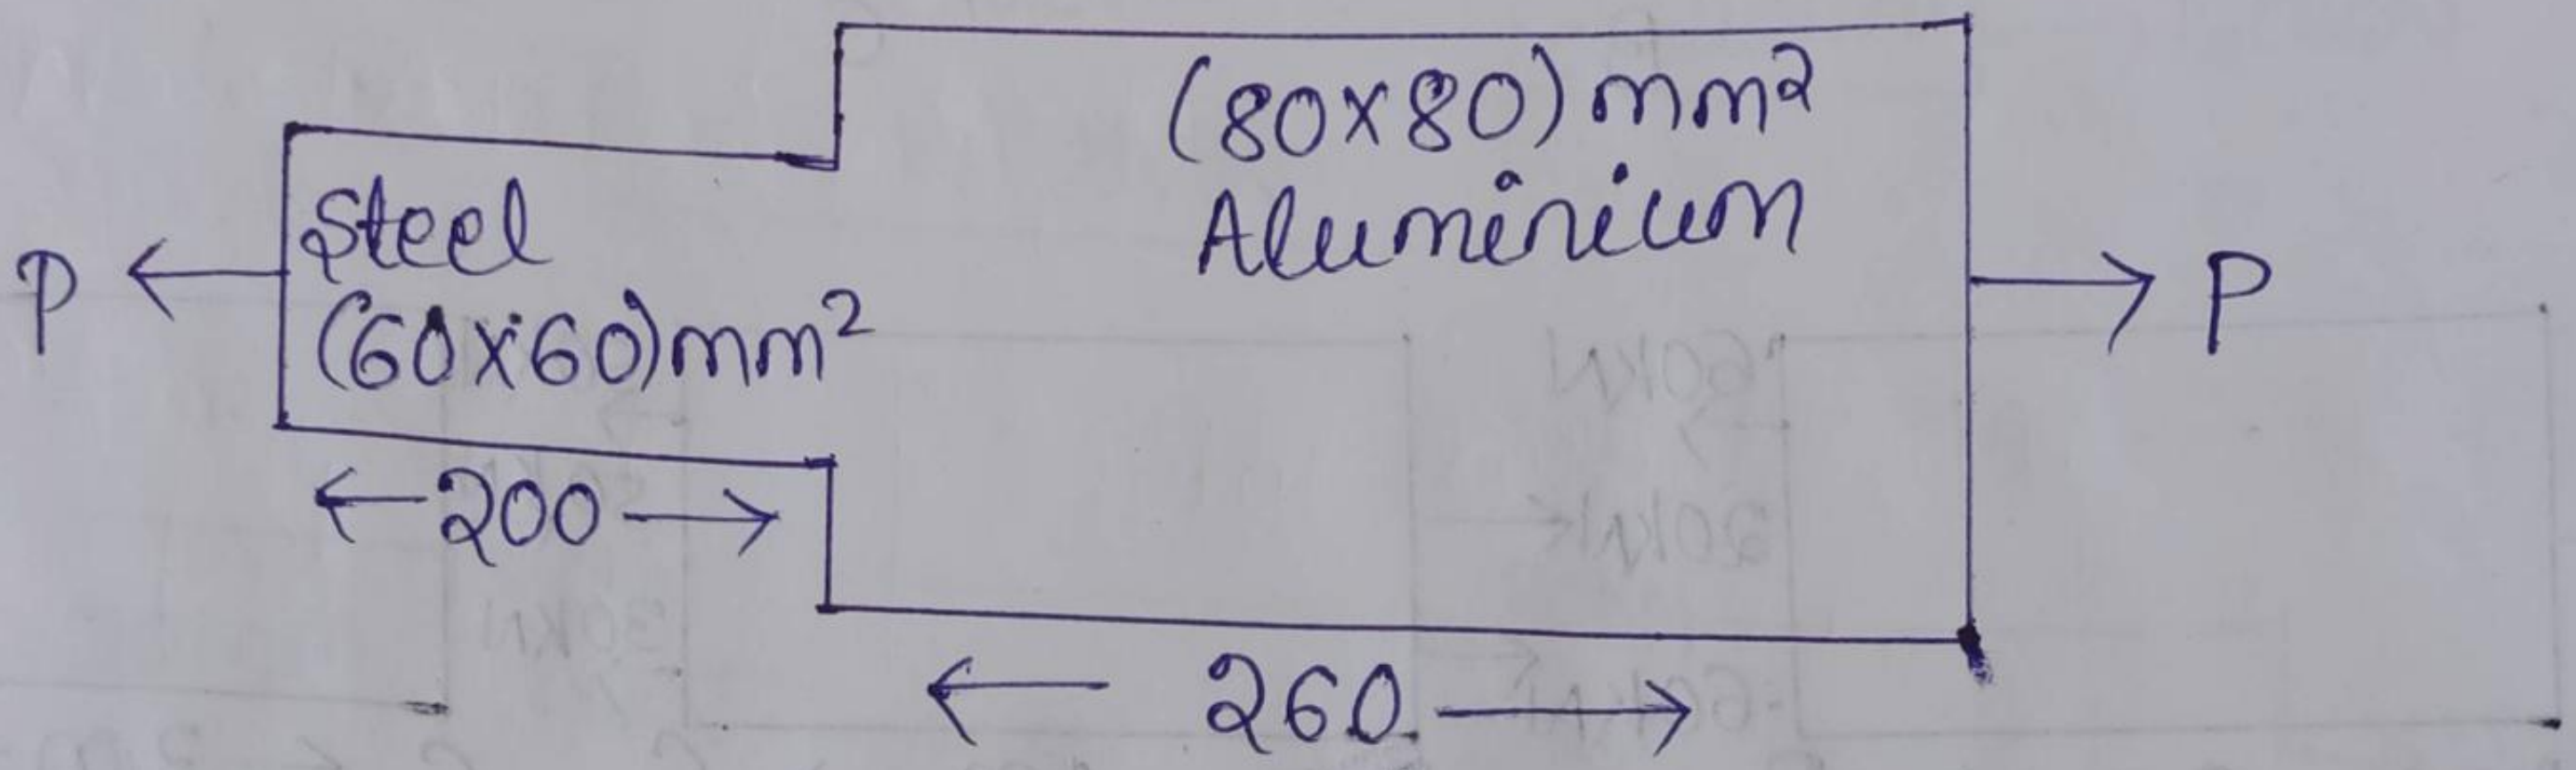 (80x80) mm²
Aluminium
Steel
(60x60)mm²
P
P
200
260
60KN